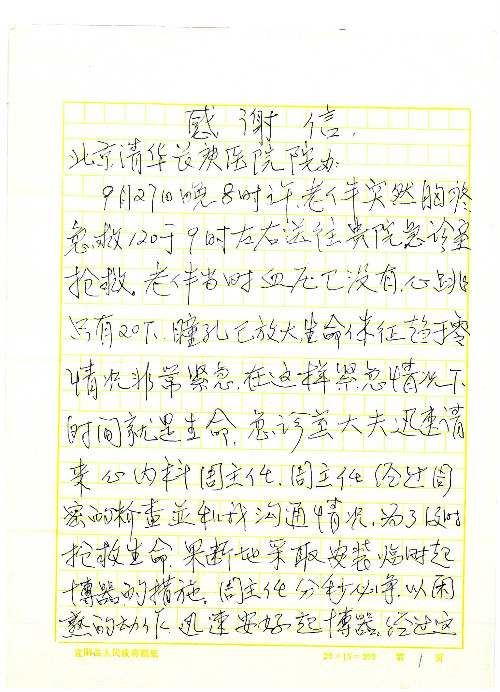 感谢信.
北京清华长庚医院院办
9月27日晚8时许老伴突然胸疼
急救120于9时左右送往贵院急诊室
抢救。老伴当时血压已没有,心跳
只有20下.瞳孔已放大,生命体征趋于零
情况非常紧急,在这样紧急情况下
时间就是生命.急诊室大夫迅速请
来心内科周主任.周主任经过周
密的检查並和我沟通情况.为了及时
抢救生命.果断地采取安装临时起
博器的措施。周主任分秒必争.以困
熟的动作.迅速安好起博器.经过
宜阳县人民政府稿纸 20×15=300 第 1 页